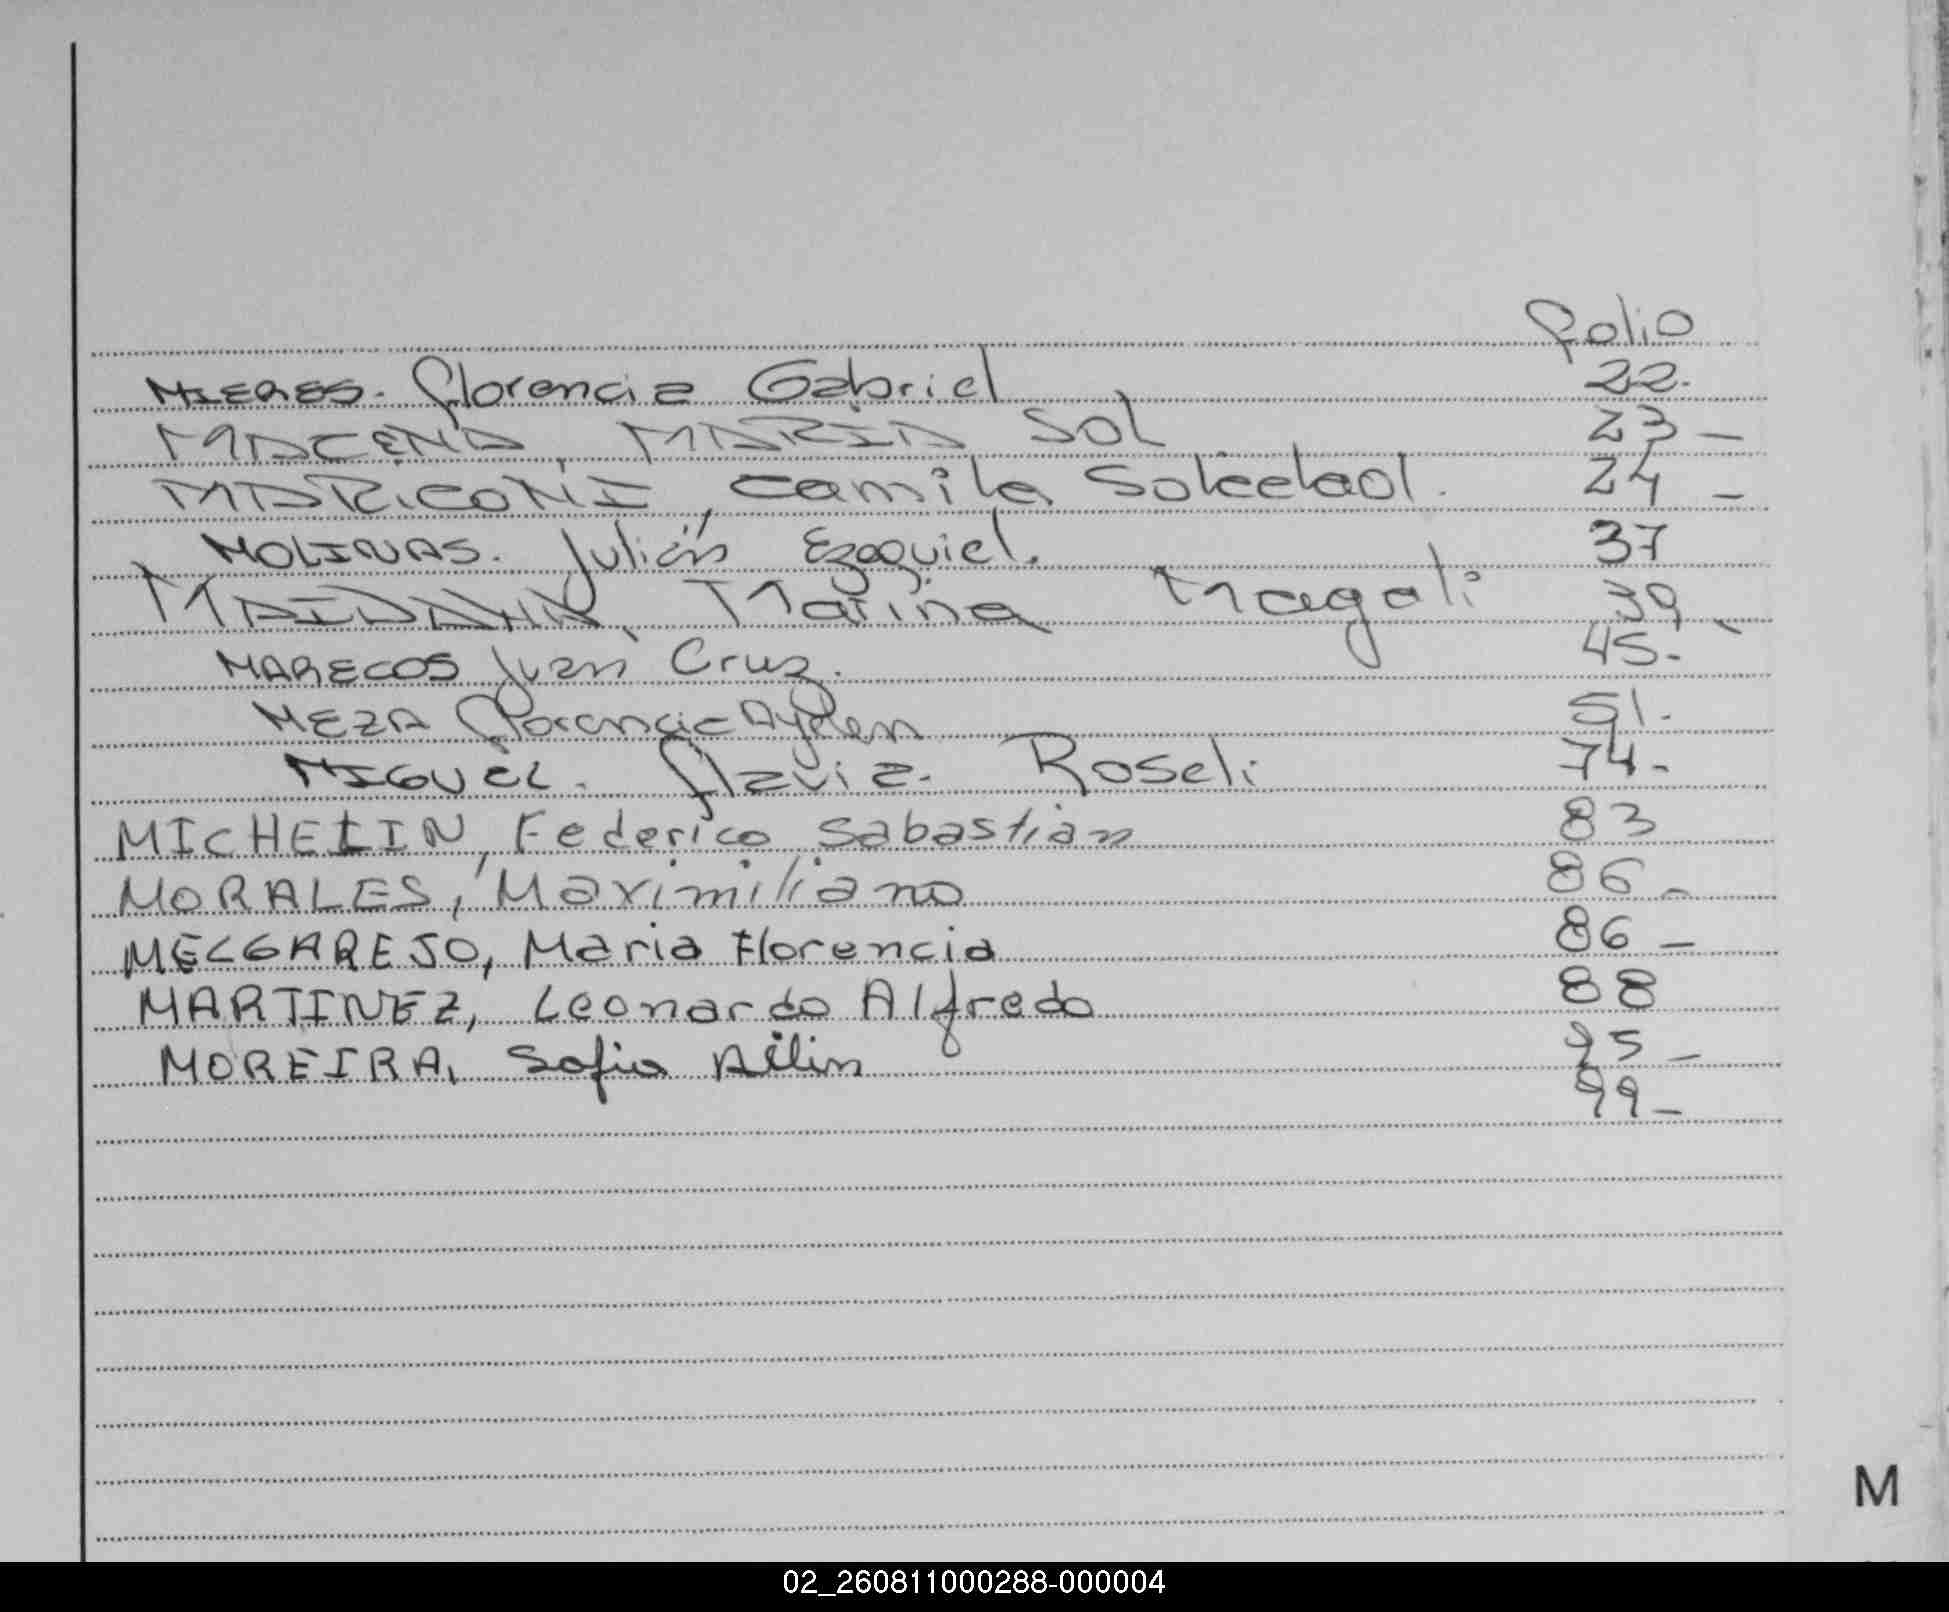 folio
MIERES. Florencia Gabriel 22.
MACENA, MARIA Sol 23 -
MARICONI, Camila Soledad. 24 -
MOLINAS. Julián Ezequiel. 37
MAIDANA, Marina Magali 39 -
MARECOS Juan Cruz. 45.
MEZA Florencia Aylen 51.
MIGUEL. Flavia. Roseli 74.
MICHELIN, Federico Sabastian 83
MORALES, Maximiliano 86 -
MELGAREJO, Maria Florencia 86 -
MARTINEZ, Leonardo Alfredo 88
MOREIRA, Sofia Ailin 95 -
99 -
M
02_260811000288-000004